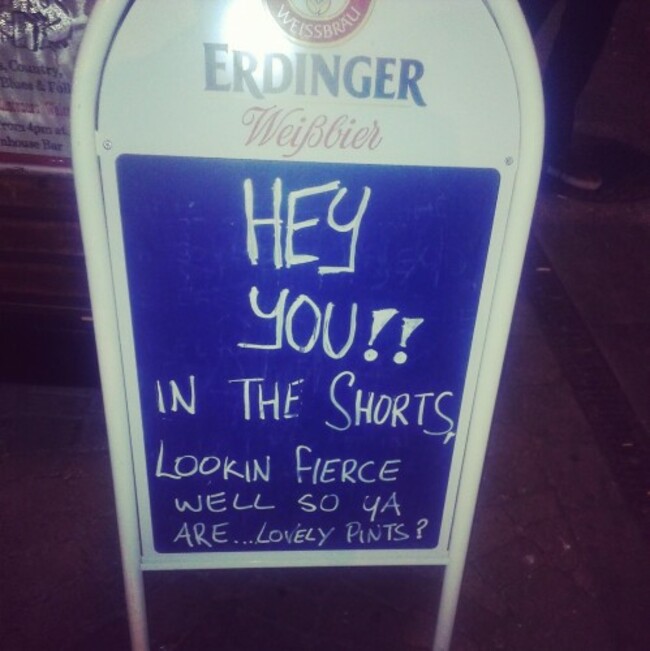 WEISSBRÄU
ERDINGER
Weißbier
HEY
YOU!!
IN THE SHORTS,
LOOKIN FIERCE
WELL SO YA
ARE...LOVELY PINTS?
Country,
Blues & Folk
from 4pm at
Bar